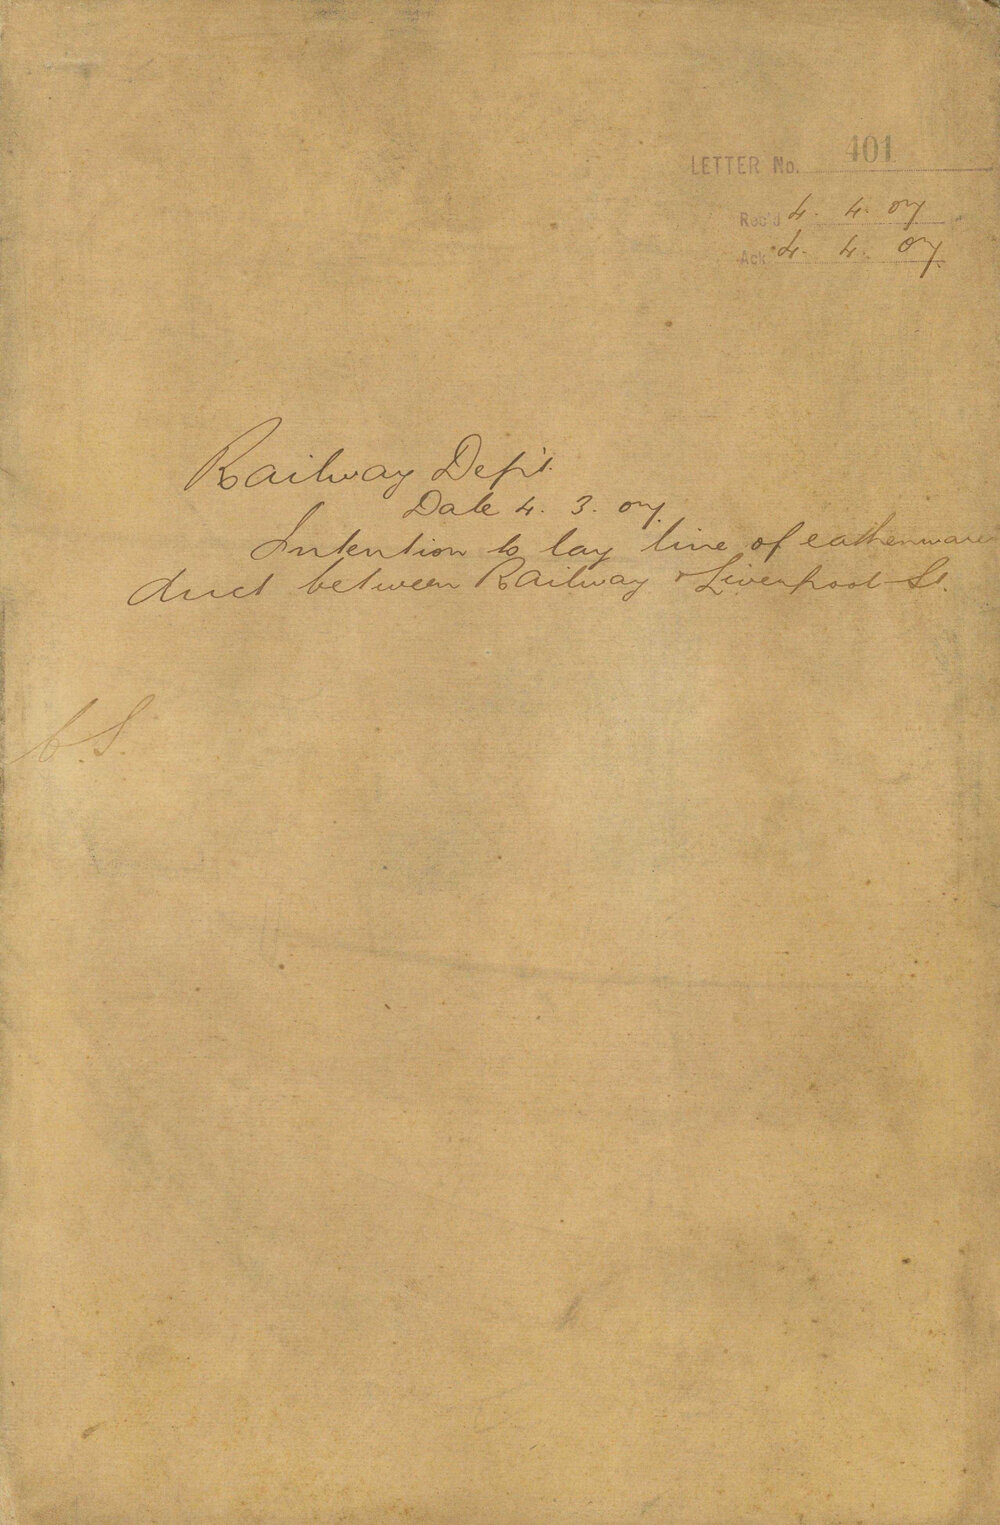 LETTER No. 401
Rec'd 4. 4. 07
Ack 4. 4. 07.
Railway Dep't.
Date 4. 3. 07.
Intention to lay line of eathenware
duct between Railway & Liverpool St.
C.S.